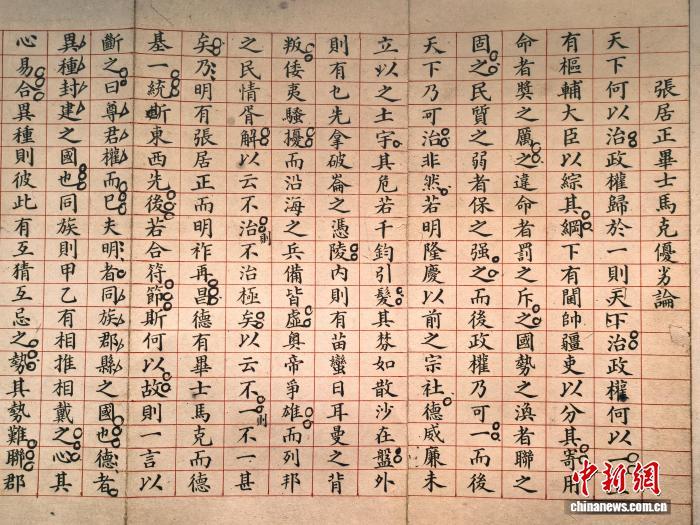 張居正畢士馬克優劣論
天下何以治政權歸於一則天下治政權何以一
有樞輔大臣以綜其綱下有閫帥疆吏以分其寄用
命者獎之厲之違命者罰之斥之國勢之渙者聯之
固之民質之弱者保之强之而後政權乃可一而後
天下乃可治非然若明隆慶以前之宗社德威廉未
立以之土宇其危若千鈞引髮其棼如散沙在盤外
則有乜先拿破崙之憑陵內則有苗蠻日耳曼之背
叛倭夷騷擾而沿海之兵備皆虛奧帝爭雄而列邦
之民情胥解以云不治則不治極矣以云不一則不一甚
矣乃明有張居正而明祚再昌德有畢士馬克而德
基一統東西先後若合符節斯何以故則一言以
斷之曰尊君權而已夫明者同族郡縣之國也德者
異種封建之國也同族則甲乙有相推相戴之心其
心易合異種則彼此有互猜互忌之勢其勢難聯郡
中新网
chinanews.com